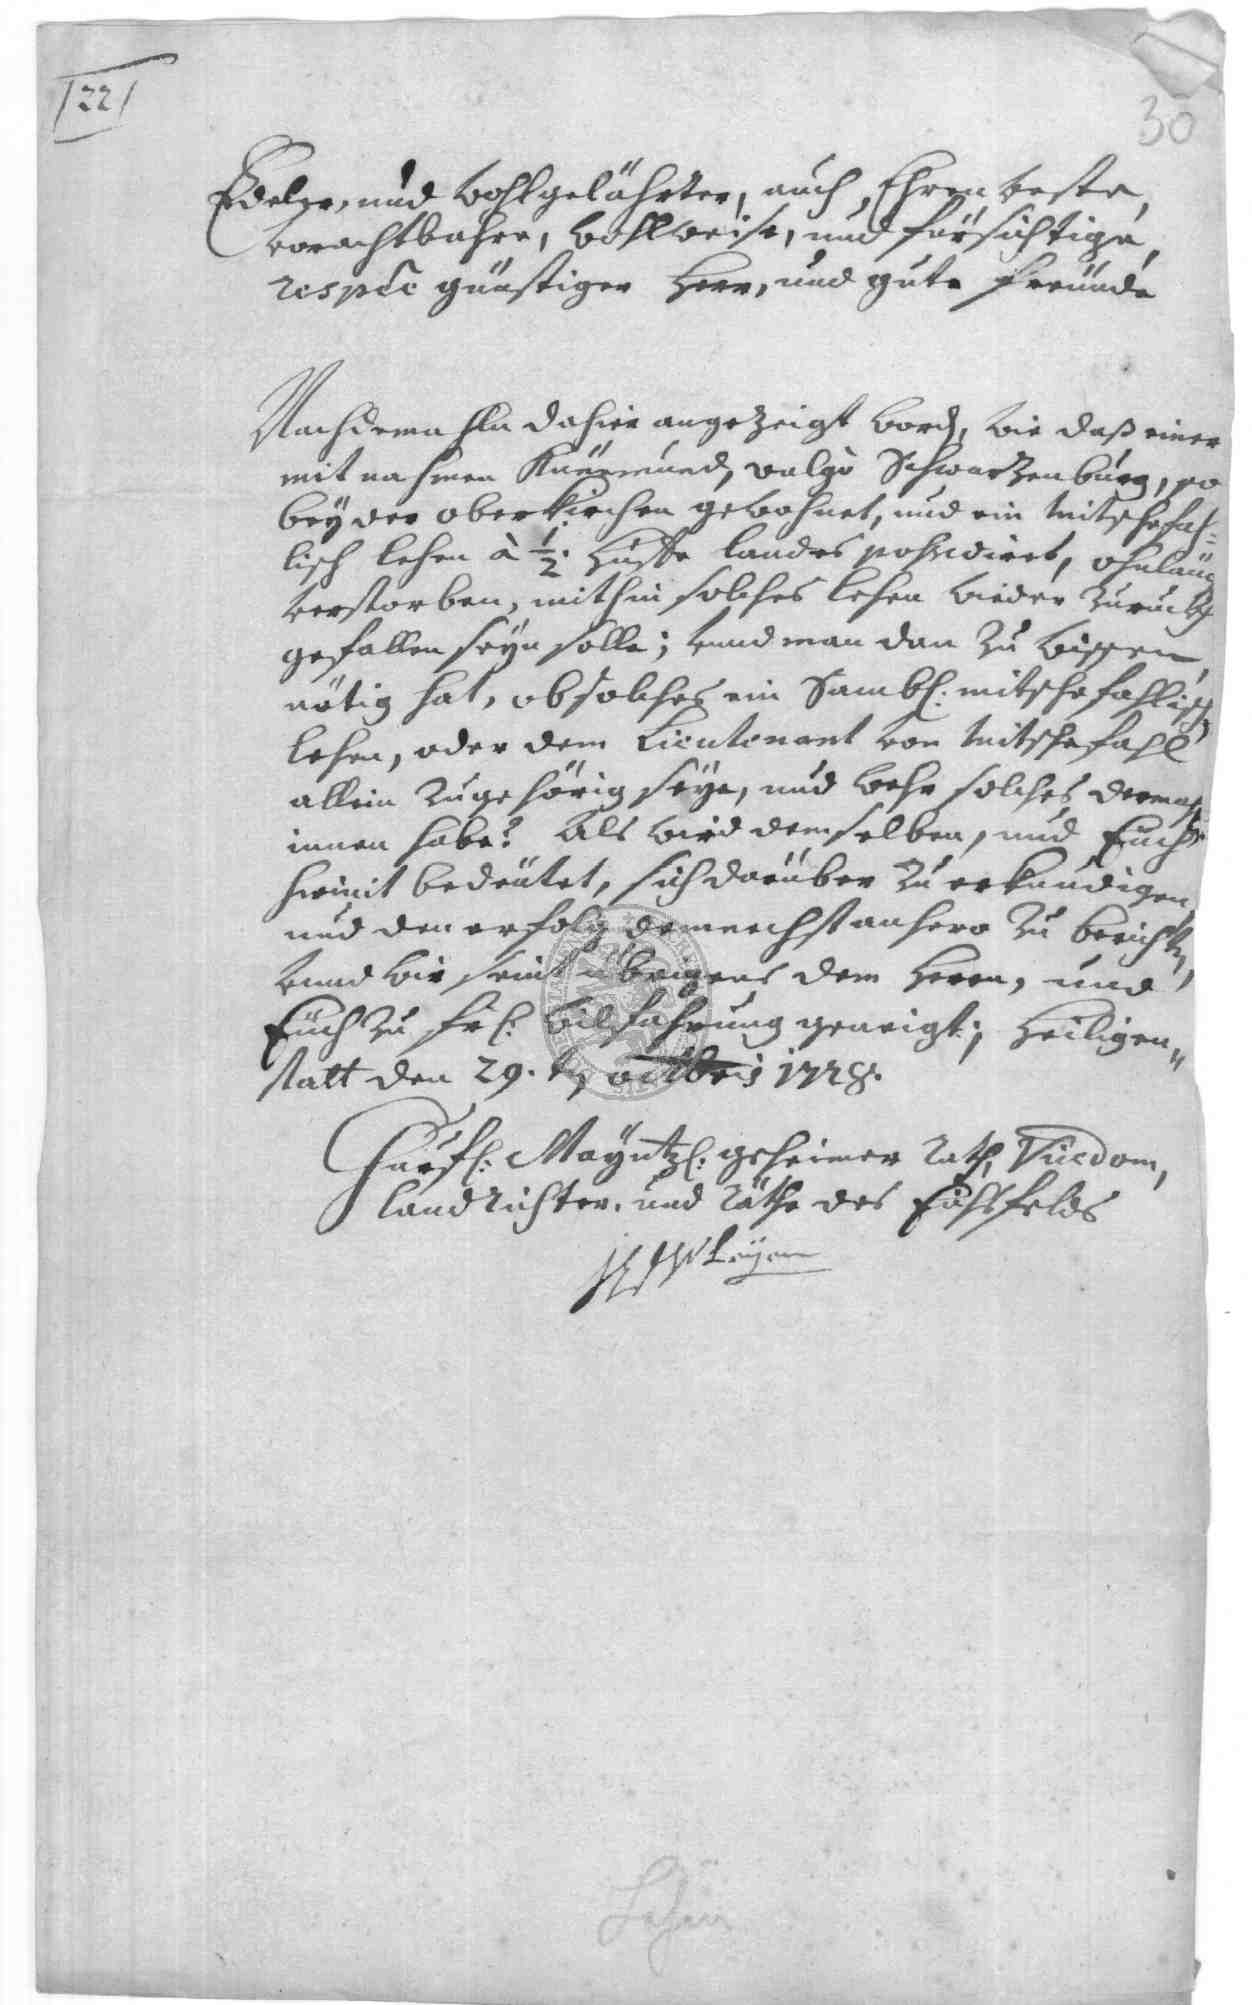 22
30
Edeler, und wohlgelährter, auch Ehrenveste,
vorachtbahre, wohlweise, und fürsichtige,
respẽe günstiger Herr, und gute Freünde
Nachdemahln dahier angezeigt word, wie daß einer
mit nahmen vulgò Schwartzenburg, so
bey der oberkirchen gewohnet, und ein Mitschefah=
lisch lehen à 1/2 Huffe landes possediret, ohnläng
verstorben, mithin solches lehen wieder zuruckh
gefallen seyn solle; vnnd man dan zu wissen
nötig hat, ob solches ein Sambtl: mitschefahlisch
lehen, oder dem Lieutenant von Mitschefahl
allein zugehörig seye, und wehr solches dermahl
innen habe? Als wird demselben, und Euch
hiemit bedeütet, sich darüber zu erkundigen
und den erfolg demnechst anhero zu berichten,
vnnd wir seint übrigens dem Herrn, und
Euch zu frl: wilfahrung geneigt; Heiligen„
statt den 29. ten octobris 1728.
Churfl: Mayntzl: geheimer rath, Vicedom,
landrichter, und räthe des Eichsfelds
Leyen
Lehen